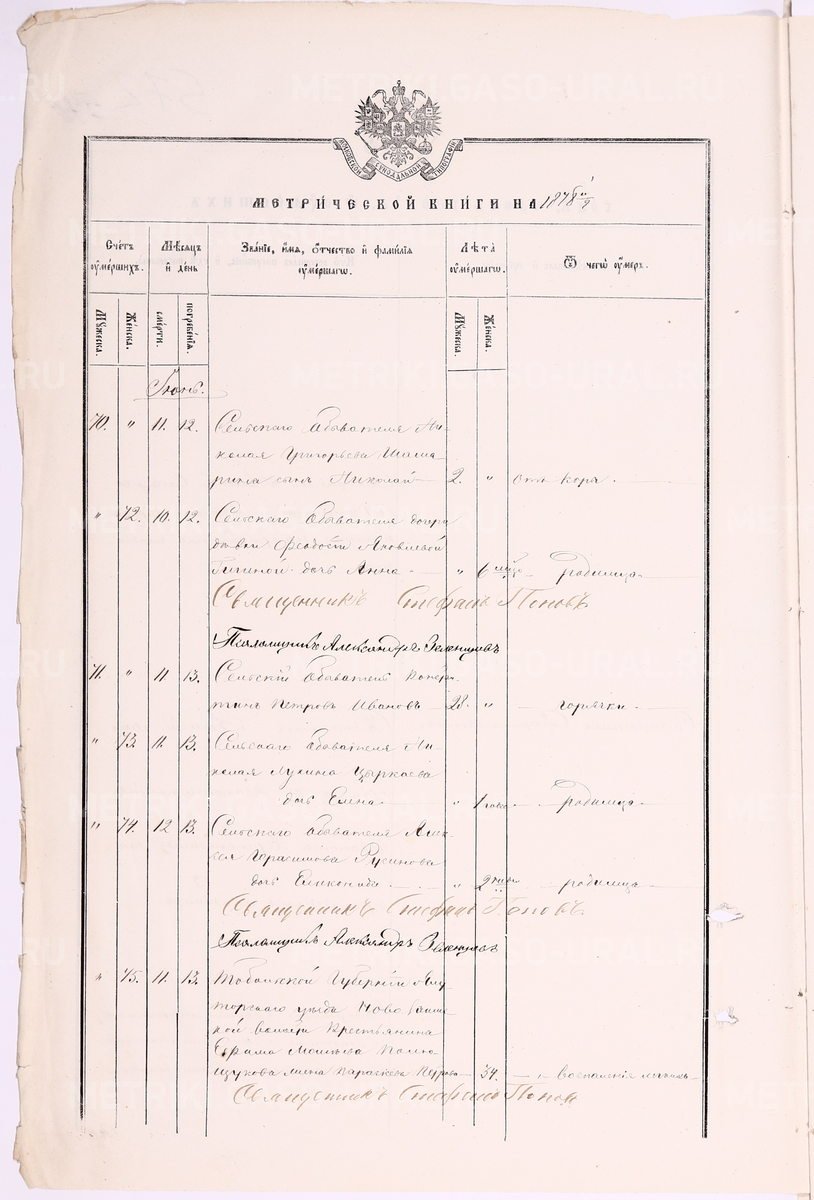 METRIKI.GASO-URAL.RU
МОСКОВСКОЙ СѴНОДАЛЬНОЙ ТИПОГРАФІИ
МЕТРИ́ЧЕСКОЙ КНИ́ГИ НА 1878
Сче́тъ ᲂу҆ме́ршихъ.
Мѣ́сяцъ и҆ де́нь
Зва́нїе, и҆́мя, ѻ҆́тчество и҆ фамі́лїя ᲂу҆ме́ршагѡ.
Лѣ́та ᲂу҆ме́ршагѡ.
Ѿ чегѡ̀ ᲂу҆́меръ.
Му́жеска.
Же́нска.
сме́рти.
погребе́нїя.
Му́жеска.
Же́нска.
Іюнь.
70. " 11. 12. Сельскаго Обывателя Ни-
колая Григорьева Шама-
рина сынъ Николай 2. " отъ кори.
" 72. 10. 12. Сельскаго Обывателя
дѣвки Феодосіи Яковлевой
дочь Анна " 6 родимца
Священникъ Стефанъ Поповъ
Псаломщикъ Александръ Зеленцовъ
71. " 11 13. Сельскій Обыватель
Петровъ Ивановъ 28. " горячки
" 73. 11. 13. Сельскаго Обывателя Ни-
колая Лукина Цыркаева
дочь Елена " 1 родимца
" 74. 12 13. Сельскаго Обывателя Алек-
сѣя Герасимова Русинова
дочь " 2 родимца
Священникъ Стефанъ Поповъ
Псаломщикъ Александръ Зеленцовъ
" 75. 11. 13. Тобольской Губерніи Ялу-
торскаго уѣзда Ново
кой волости Крестьянина
Ефима
жена Параскева Петрова 34. воспаленіе
Священникъ Стефанъ Поповъ